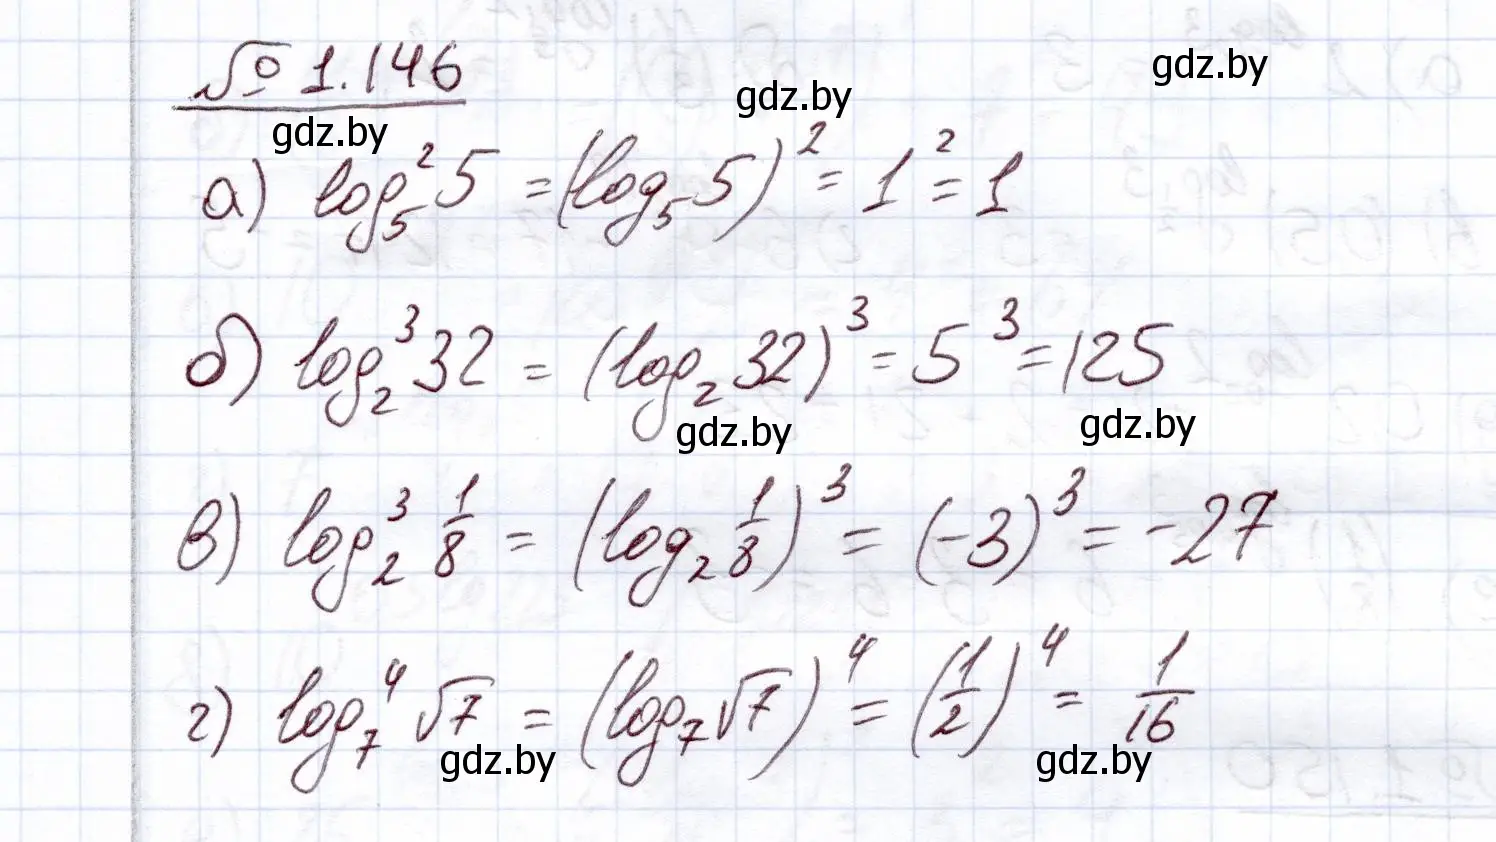 № 1.146
gdz.by gdz.by gdz.by
а) log₅² 5 = (log₅ 5)² = 1² = 1
б) log₂³ 32 = (log₂ 32)³ = 5³ = 125
gdz.by gdz.by
в) log₂³ 1/8 = (log₂ 1/8)³ = (-3)³ = -27
г) log₇⁴ √7 = (log₇ √7)⁴ = (1/2)⁴ = 1/16
gdz.by gdz.by